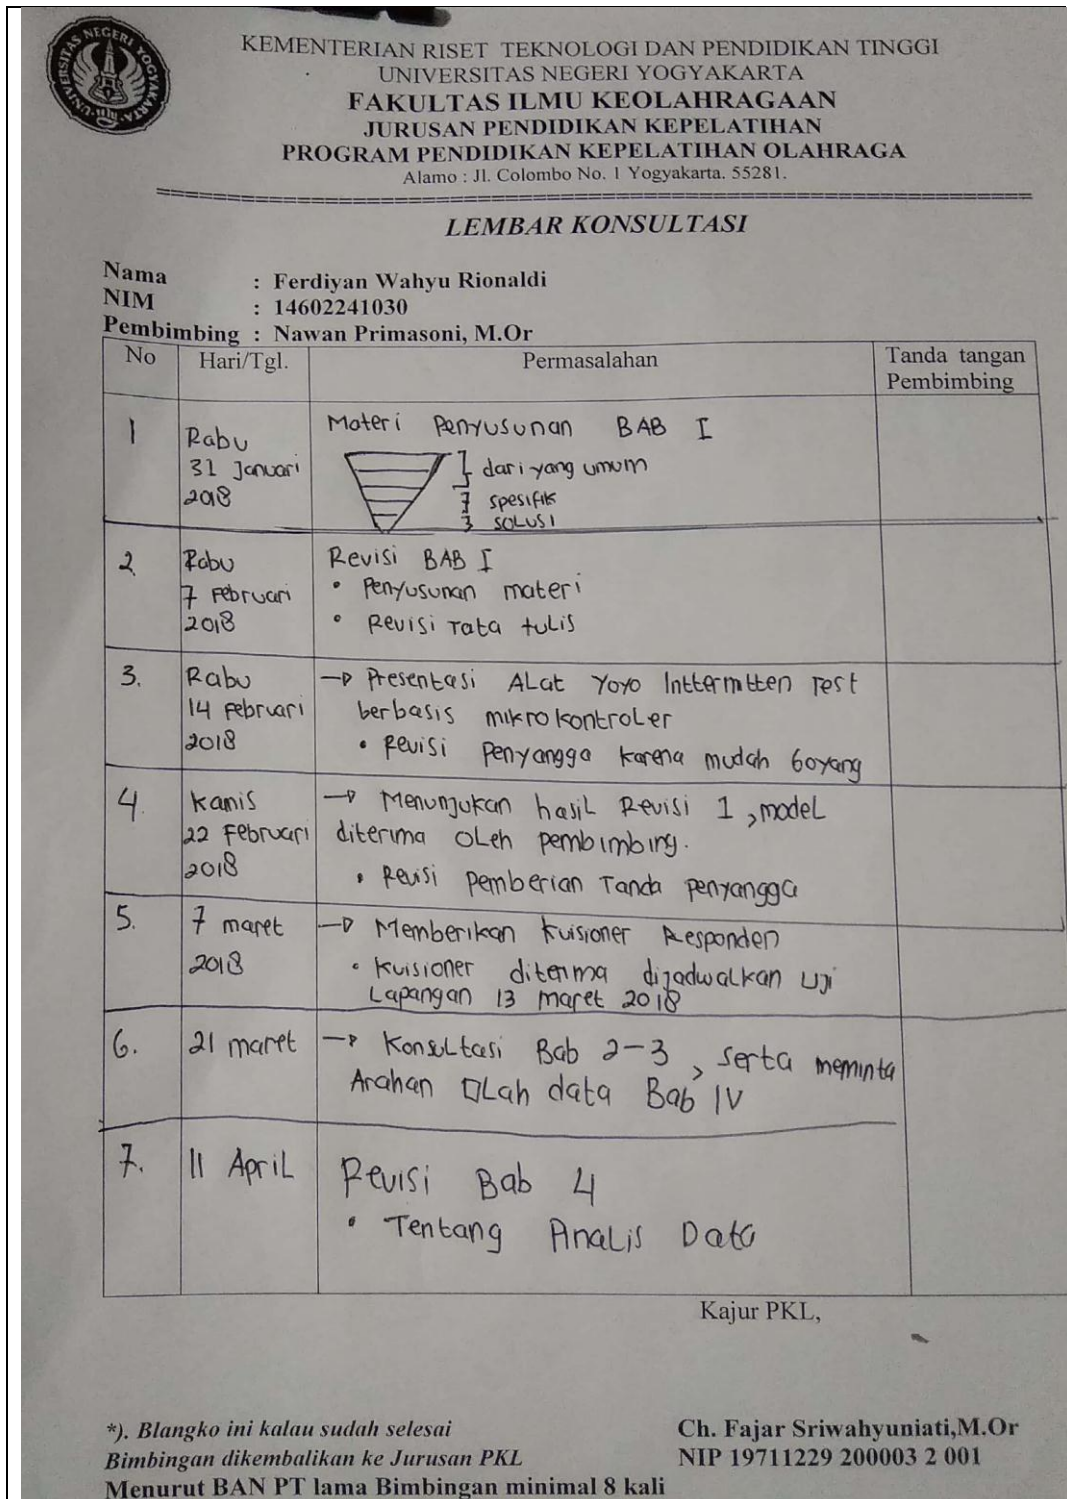 UNIVERSITAS NEGERI YOGYAKARTA
KEMENTERIAN RISET TEKNOLOGI DAN PENDIDIKAN TINGGI
UNIVERSITAS NEGERI YOGYAKARTA
FAKULTAS ILMU KEOLAHRAGAAN
JURUSAN PENDIDIKAN KEPELATIHAN
PROGRAM PENDIDIKAN KEPELATIHAN OLAHRAGA
Alamo : Jl. Colombo No. 1 Yogyakarta. 55281.
LEMBAR KONSULTASI
Nama : Ferdiyan Wahyu Rionaldi
NIM : 14602241030
Pembimbing : Nawan Primasoni, M.Or
No Hari/Tgl. Permasalahan Tanda tangan
Pembimbing
1 Rabu Materi Penyusunan BAB I
31 Januari dari yang umum
2018 spesifik
solusi
2. Rabu Revisi BAB I
7 Februari • Penyusunan materi
2018 • Revisi Tata tulis
3. Rabu → Presentasi Alat Yoyo Inttermitten Test
14 Februari berbasis mikrokontroler
2018 • Revisi penyangga karena mudah goyang
4. Kamis → Menunjukan hasil Revisi 1, model
22 Februari diterima oleh pembimbing.
2018 • Revisi pemberian Tanda penyangga
5. 7 maret → Memberikan Kuisioner Responden
2018 • Kuisioner diterima dijadwalkan Uji
Lapangan 13 maret 2018
6. 21 maret → Konsultasi Bab 2-3, serta meminta
Arahan Olah data Bab IV
7. 11 April Revisi Bab 4
• Tentang Analis Data
Kajur PKL,
*). Blangko ini kalau sudah selesai
Bimbingan dikembalikan ke Jurusan PKL
Menurut BAN PT lama Bimbingan minimal 8 kali
Ch. Fajar Sriwahyuniati,M.Or
NIP 19711229 200003 2 001